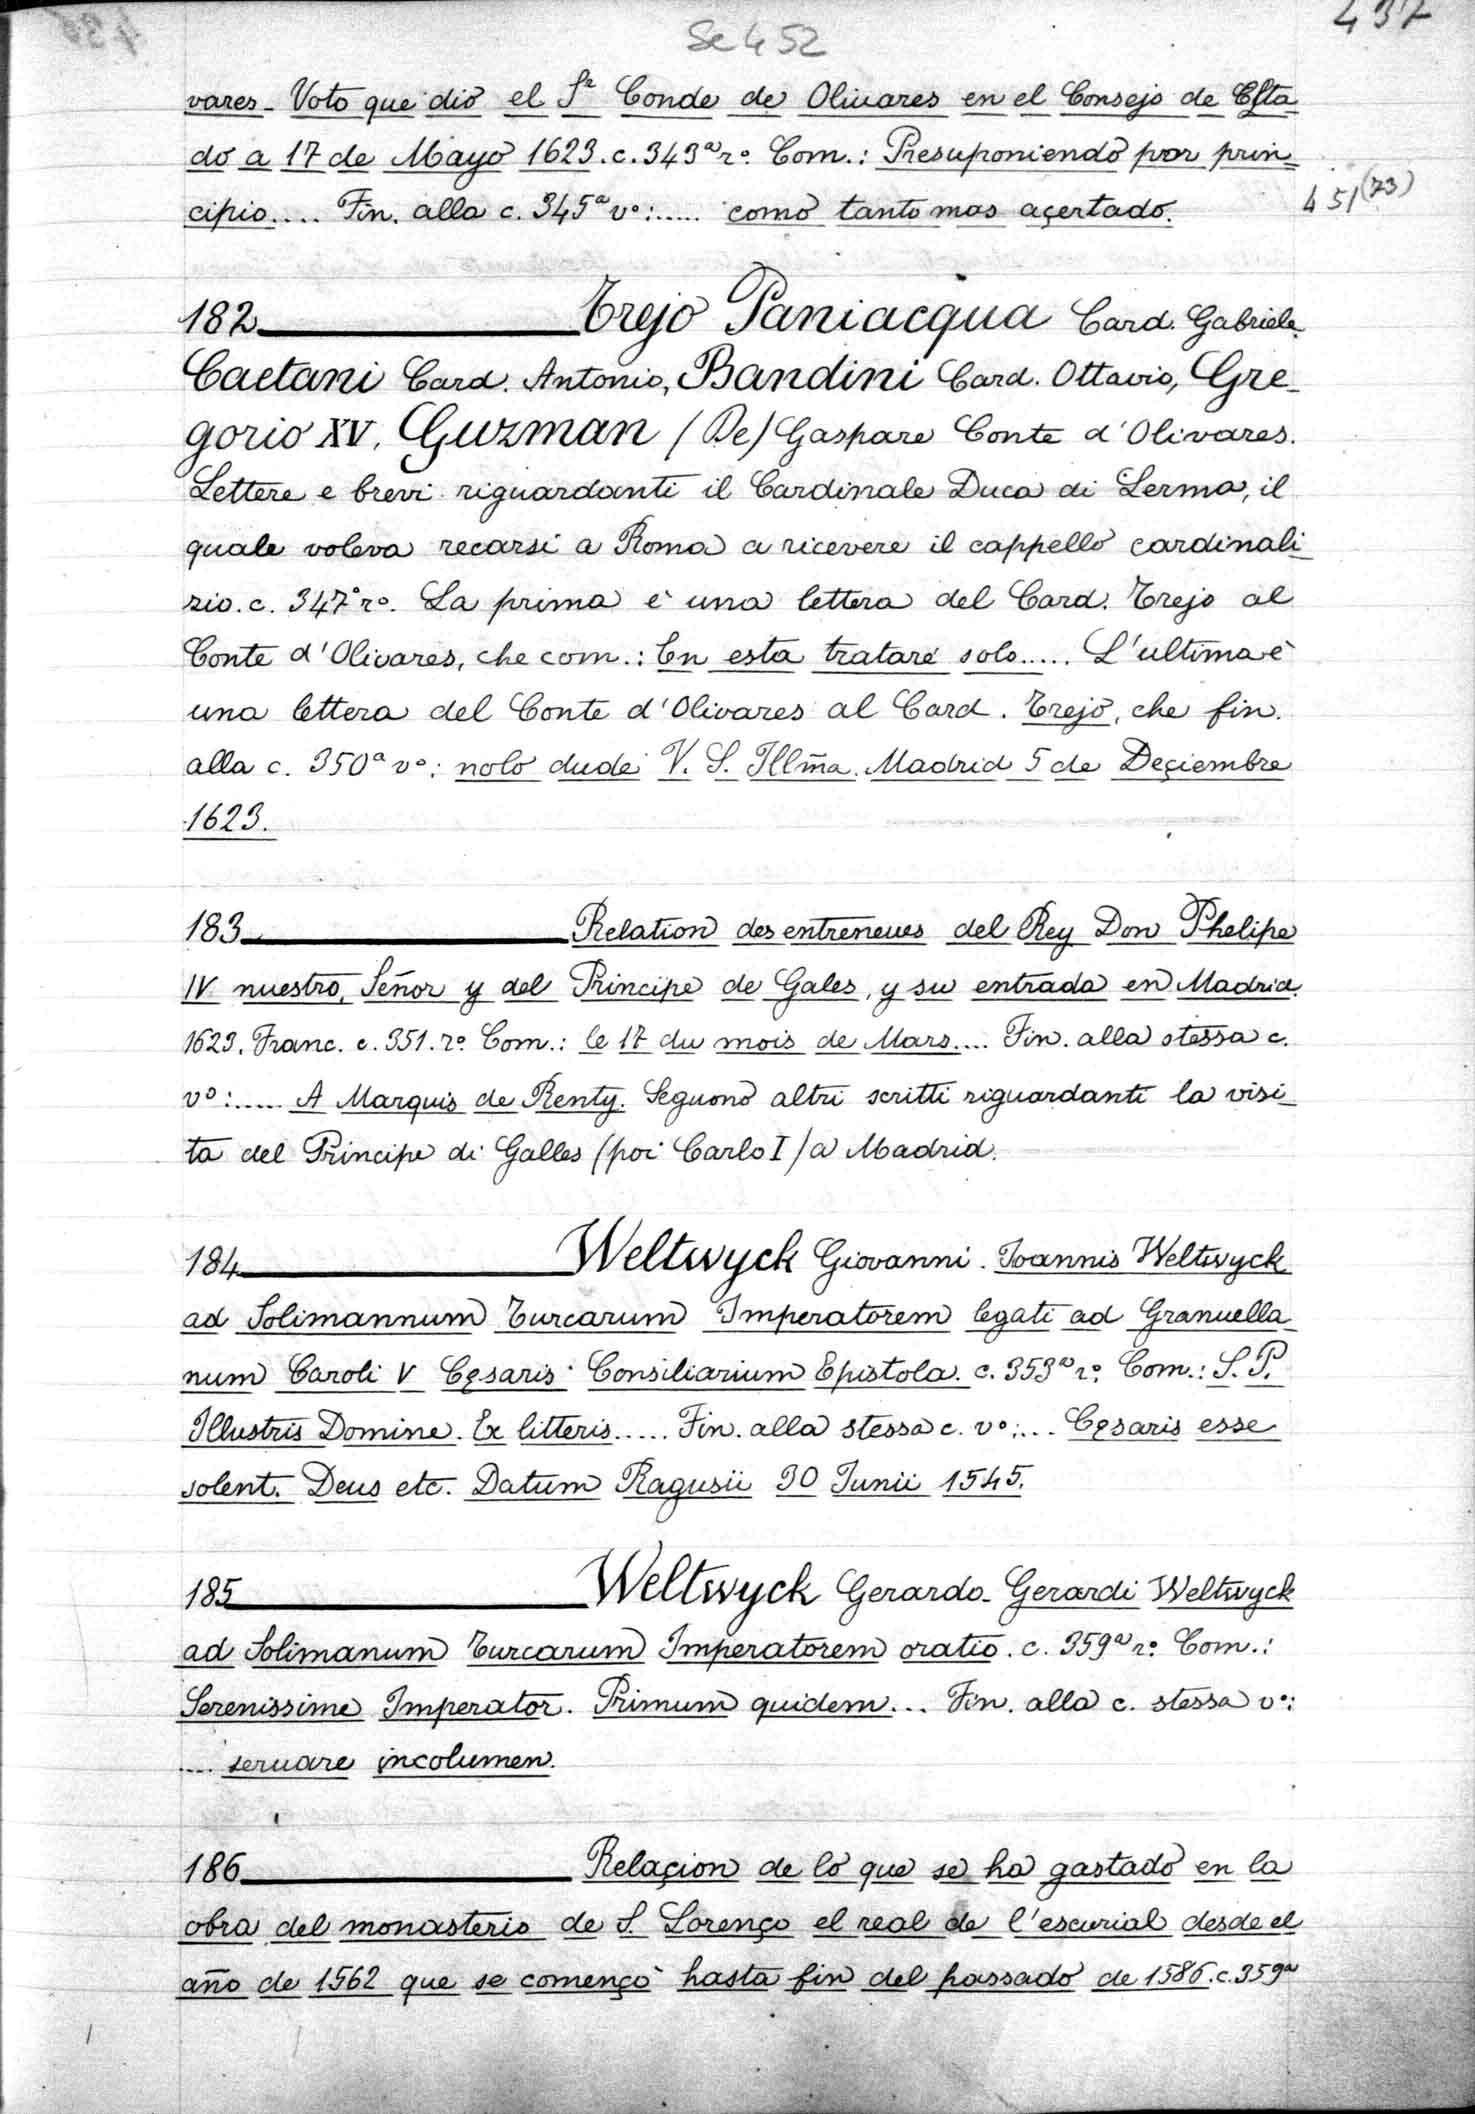 Se 452
437
vares - Voto que dió el Sr Conde de Oliuares en el Consejo de Esta
do a 17 de Mayo 1623. c. 343a ro. Com.: Presuponiendo por prin=
cipio.... Fin. alla c. 345a vo:..... como tanto mas açertado.
451 (73)
182 Trejo Paniacqua Card. Gabriele.
Caetani Card. Antonio, Bandini Card. Ottavio, Gre-
gorio XV, Guzman (De) Gaspare Conte d'Olivares.
Lettere e brevi riguardanti il Cardinale Duca di Lerma, il
quale voleva recarsi a Roma a ricevere il cappello cardinali-
zio. c. 347a ro. La prima è una lettera del Card. Trejo al
Conte d'Olivares, che com.: En esta trataré solo..... L'ultima è
una lettera del Conte d'Olivares al Card. Trejo, che fin.
alla c. 350a vo: nolo dude V. S. Illm̃a. Madrid 5 de Deçiembre
1623.
183 Relation des entreneues del Rey Don Phelipe
IV nuestro Señor y del Principe de Gales, y su entrada en Madrid.
1623. Franc. c. 351. ro. Com.: le 17 du mois de Mars.... Fin. alla stessa c.
vo:..... A Marquis de Renty. Seguono altri scritti riguardanti la visi-
ta del Principe di Galles (poi Carlo I) a Madrid.
184 Weltwyck Giovanni. Joannis Weltwyck
ad Solimannum Turcarum Imperatorem legati ad Granuella-
num Caroli V Cęsaris Consiliarium Epistola. c. 353a ro. Com.: S. P.
Illustris Domine. Ex litteris..... Fin. alla stessa c. vo:... Cęsaris esse
solent. Deus etc. Datum Ragusii 30 Junii 1545.
185 Weltwyck Gerardo - Gerardi Weltwyck
ad Solimanum Turcarum Imperatorem oratio. c. 359a ro. Com.:
Serenissime Imperator. Primum quidem... Fin. alla c. stessa vo:
.... seruare incolumen.
186 Relaçion de lo que se ha gastado en la
obra del monasterio de S. Lorenço el real de l'escurial desde el
año de 1562 que se començò hasta fin del passado de 1586. c. 359a